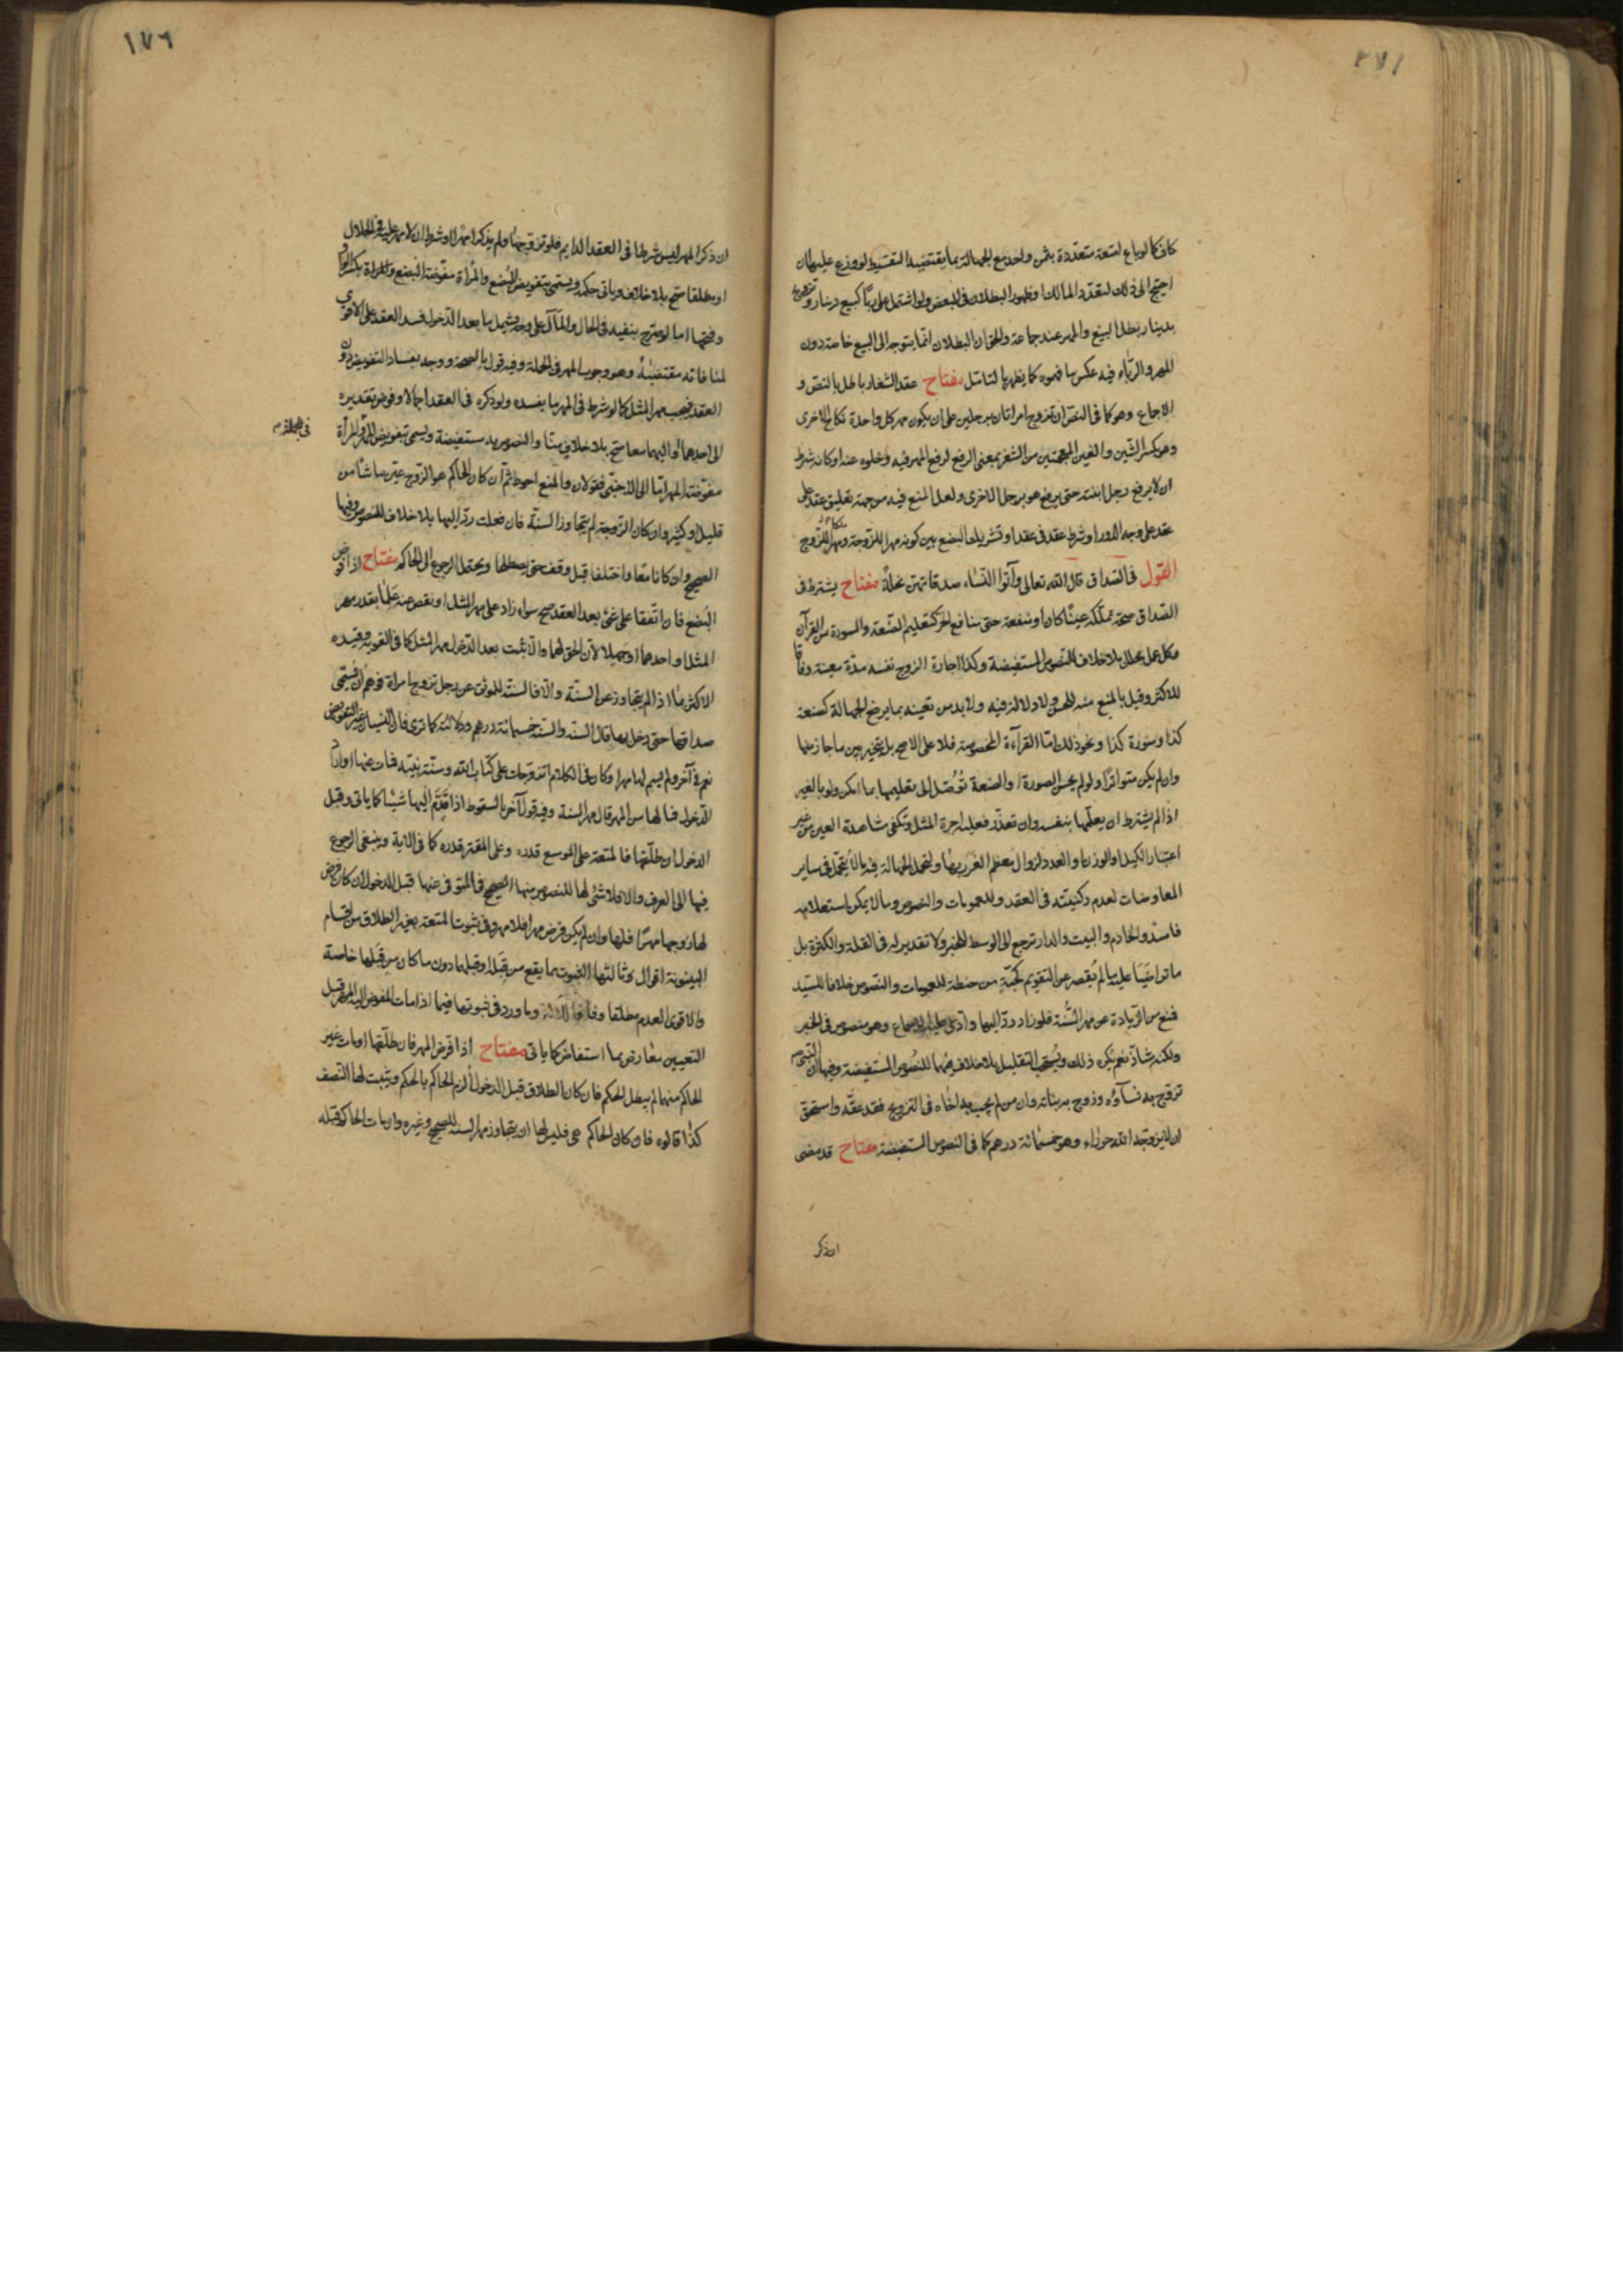 كما في كما لو باع امتعة متعددة بثمن واحد مع الجهالة بما يقتضيه التقسيط لو وزع عليها ان
احتيج الى ذلك لتعدد المالك او ظهور البطلان في البعض ولو اشتمل على ربا كبيع دينار وتزويج
بدينار بطل البيع والمهر عند جماعة والحق ان البطلان انما يتوجه الى البيع خاصة دون
المهر والرباء فيه عكس ما فهموه كما يظهر بالتامل مفتاح عقد الشغار باطل بالنص و
الاجماع وهو كما في النص ان تزوج امراتان برجلين على ان يكون مهر كل واحدة نكاح الاخرى
وهو بكسر الشين والغين المعجمتين من الشغر بمعنى الرفع لرفع المهر فيه وخلوه عنه او كانه شرط
ان لا يرفع رجل ابنته حتى يرفع هو برجل الاخرى ولعل المنع فيه من جهة تعليق عقد على
عقد على وجه الدور او شرط عقد في عقد او تشريك البضع بين كونه مهرا للزوجة وملكا للزوج
القول في الصداق قال الله تعالى وآتوا النساء صدقاتهن نحلة مفتاح يشترط في
الصداق صحة تملكه عينا كان او منفعة حتى منافع الحر كتعليم الصنعة والسورة من القرآن
وكل عمل محلل بلا خلاف للنصوص المستفيضة وكذا اجارة الزوج نفسه مدة معينة وفاقا
للاكثر وقيل بالمنع منه للحسن ولا دلالة فيه ولا بد من تعيينه بما يرفع الجهالة كصنعة
كذا وسورة كذا ونحو ذلك اما القرآءة المخصوصة فلا على الاصح بل يتخير بين ما جاز منها
وان لم يكن متواترا ولو لم يحسن الصورة او الصنعة توصل الى تعليمها بما امكن ولو بالغير
اذا لم يشترط ان يعلمها بنفسه وان تعذر فعليه اجرة المثل وتكفي مشاهدة العين من غير
اعتبار الكيل او الوزن او العدد لزوال معظم الغرر بها ولتحمل الجهالة فيه ما لا يتحمل في ساير
المعاوضات لعدم ركنيته في العقد وللعمومات والنصوص وما لا يمكن استعلامه
فاسد والخادم والبيت والدار ترجع الى الوسط للخبر ولا تقدير له في القلة والكثرة بل
ما تراضيا عليه ما لم يقصر عن التقويم كحبة من حنطة للعمومات والنصوص خلافا للسيد
فمنع من الزيادة عن مهر السنة فلو زاد رد اليها وادعى عليه الاجماع وهو منصوص في الخبر
ولكنه شاذ نعم يكره ذلك ويستحب التقليل بلا خلاف فيهما للنصوص المستفيضة وفيها ان النبي ص
تزوج به نسآؤه وزوج به بناته وان من لم يجب به اخاه في التزويج فقد عقه واستحق
ان لا يزوجه الله حوراء وهو خمسمائة درهم كما في النصوص المستفيضة مفتاح قد مضى
ان ذكر
١٧٦
ان ذكر المهر ليس شرطا في العقد الدايم فلو تزوجها ولم يذكر مهرا او شرط ان لا مهر عليه في الحال
او مطلقا صح بلا خلاف وياتي حكمه ويسمى بتفويض البضع والمرأة مفوضة البضع والمراة بكسر الواو
وفتحها اما لو صرح بنفيه في الحال والمآل على وجه يشمل ما بعد الدخول فسد العقد على الاقوى
لمنافاته مقتضيه وهو وجوب المهر في الجملة وفيه قول بالصحة ووجه بفساد التفويض دون
العقد فيجب مهر المثل كما لو شرط في المهر ما يفسده ولو ذكره في العقد اجمالا وفوض تقديره
في الجملة م
الى احدهما او اليهما معا صح بلا خلاف منا والنصوص به مستفيضة ويسمى تفويض المهر والمرأة
مفوضة المهر اما الى الاجنبي فقولان والمنع احوط ثم ان كان الحاكم هو الزوج عين ما شاء من
قليل او كثير وان كان الزوجة لم يتجاوز السنة فان فعلت رد اليها بلا خلاف للنصوص وفيها
الصحيح وان كانا معا واختلفا قيل وقف حتى يصطلحا ويحتمل الرجوع الى الحاكم مفتاح اذا فوض
البضع فان اتفقا على شئ بعد العقد صح سواء زاد على مهر المثل او نقص عنه علما بقدر مهر
المثل او احدهما او جهلا لان الحق لهما والا ثبت بعد الدخول مهر المثل كما في القوية وقيده
الاكثر بما اذا لم يتجاوز عن السنة والا فالسنة للموثق عن رجل تزوج امراة فوهم ان يسمي
صداقها حتى دخل بها قال السنة والسنة خمسمائة درهم ودلالته كما ترى فان النسيان غير التفويض
نعم في آخر ولم يسم لها مهرا وكان في الكلام اتزوجك على كتاب الله وسنة نبيه فمات عنها او اراد
الدخول فما لها من المهر قال مهر السنة وفيه قول آخر بالسقوط اذا قدم اليها شيئا كما ياتي وقيل
الدخول ان طلقها فالمتعة على الموسع قدره وعلى المقتر قدره كما في الآية وينبغي الرجوع
فيها الى العرف والا فلا شئ لها للنصوص منها الصحيح في المتوفى عنها قبل الدخول ان كان فرض
لها زوجها مهرا فلها وان لم يكن فرض مهرا فلا مهر وفي ثبوت المتعة بغير الطلاق من اقسام
البينونة اقوال وثالثها الثبوت بما يقع من قبله او قبلهما دون ما كان من قبلها خاصة
والاقوى العدم مطلقا وفاقا وما ورد في ثبوتها فيما اذا مات المفوض اليه المهر قبل
التعيين معارض بما استفاض كما ياتي مفتاح اذا فرض المهر فان طلقها او مات غير
الحاكم منهما لم يبطل الحكم فان كان الطلاق قبل الدخول ألزم الحاكم بالحكم ويثبت لها النصف
كذا قالوه فان كان الحاكم هي فليس لها ان يتجاوز مهر السنة للصحيح وغيره وان مات الحاكم قبله